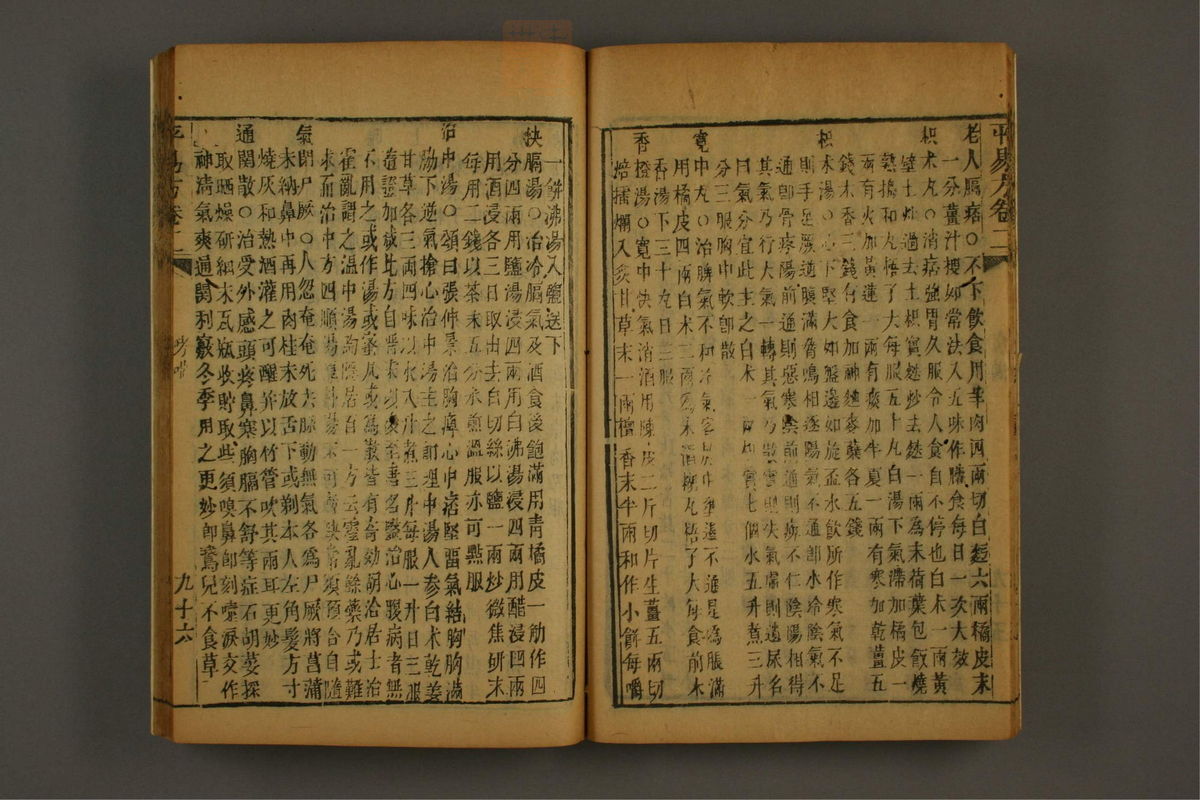 平易方卷二
老人膈痞○不下飲食用羊肉四兩切白麪六兩橘皮末
一分薑汁搜如常法入五味作臛食每日一次大效
枳朮丸○消痞強胃久服令人食自不停也白朮一兩黃
壁土炒過去土枳實麩炒去麩一兩為末荷葉包飯燒
熟搗和丸梧子大每服五十丸白湯下氣滯加橘皮一
兩有火加黃連一兩有痰加半夏一兩有寒加乾薑五
錢木香三錢有食加神麯麥蘗各五錢
枳朮湯○心下堅大如盤邊如旋盃水飲所作寒氣不足
則手足厥逆腹滿脅鳴相逐陽氣不通卽水冷陰氣不
通卽骨疼陽前通則惡寒陰前通則痹不仁陰陽相得
其氣乃行大氣一轉其氣乃散實則失氣虛則遺尿名
曰氣分宜此主之白朮一兩枳實七個水五升煮三升
分三服胸中軟卽散
寬中丸○治脾氣不和冷氣客於中壅遏不通是為脹滿
用橘皮四兩白朮二兩為末酒糊丸梧子大每食前木
香湯下三十丸日三服
香橙湯○寬中快氣消酒用陳皮二斤切片生薑五兩切
焙擂爛入炙甘草末一兩檀香末半兩和作小餅每嚼
一餅沸湯入鹽送下
快膈湯○治冷膈氣及酒食後飽滿用青橘皮一觔作四
分四兩用鹽湯浸四兩用白沸湯浸四兩用醋浸四兩
用酒浸各三日取出去白切絲以鹽一兩炒微焦研末
每用二錢以茶末五分水煎溫服亦可點服
治中湯○頌曰張仲景治胸痹心中痞堅留氣結胸胸滿
脇下逆氣搶心治中湯主之卽理中湯人參白朮乾姜
甘草各三兩四味以水八升煮三升每服一升日三服
隨證加減此方自晉宋以後至唐名醫治心腹病者無
不用之或作湯或蜜丸或為散皆有奇効胡洽居士治
霍亂謂之溫中湯陶隱居百一方云霍亂餘藥乃或難
求而治中方四順湯厚朴湯不可暫缺常須預合自隨
氣閉尸厥○人忽奄奄死去脉動無氣各爲尸厥將菖蒲
末納鼻中再用肉桂末放舌下或剃本人左角髮方寸
燒灰和熱酒灌之可醒并以竹管吹其兩耳更妙
通關散○治受外感頭疼鼻塞胸膈不舒等症石胡荽採
取晒燥研細末瓦瓶收貯取些須嗅鼻卽刻嚏淚交作
神淸氣爽通關利竅冬季用之更妙卽鵞兒不食草
平易方
卷二
九十六